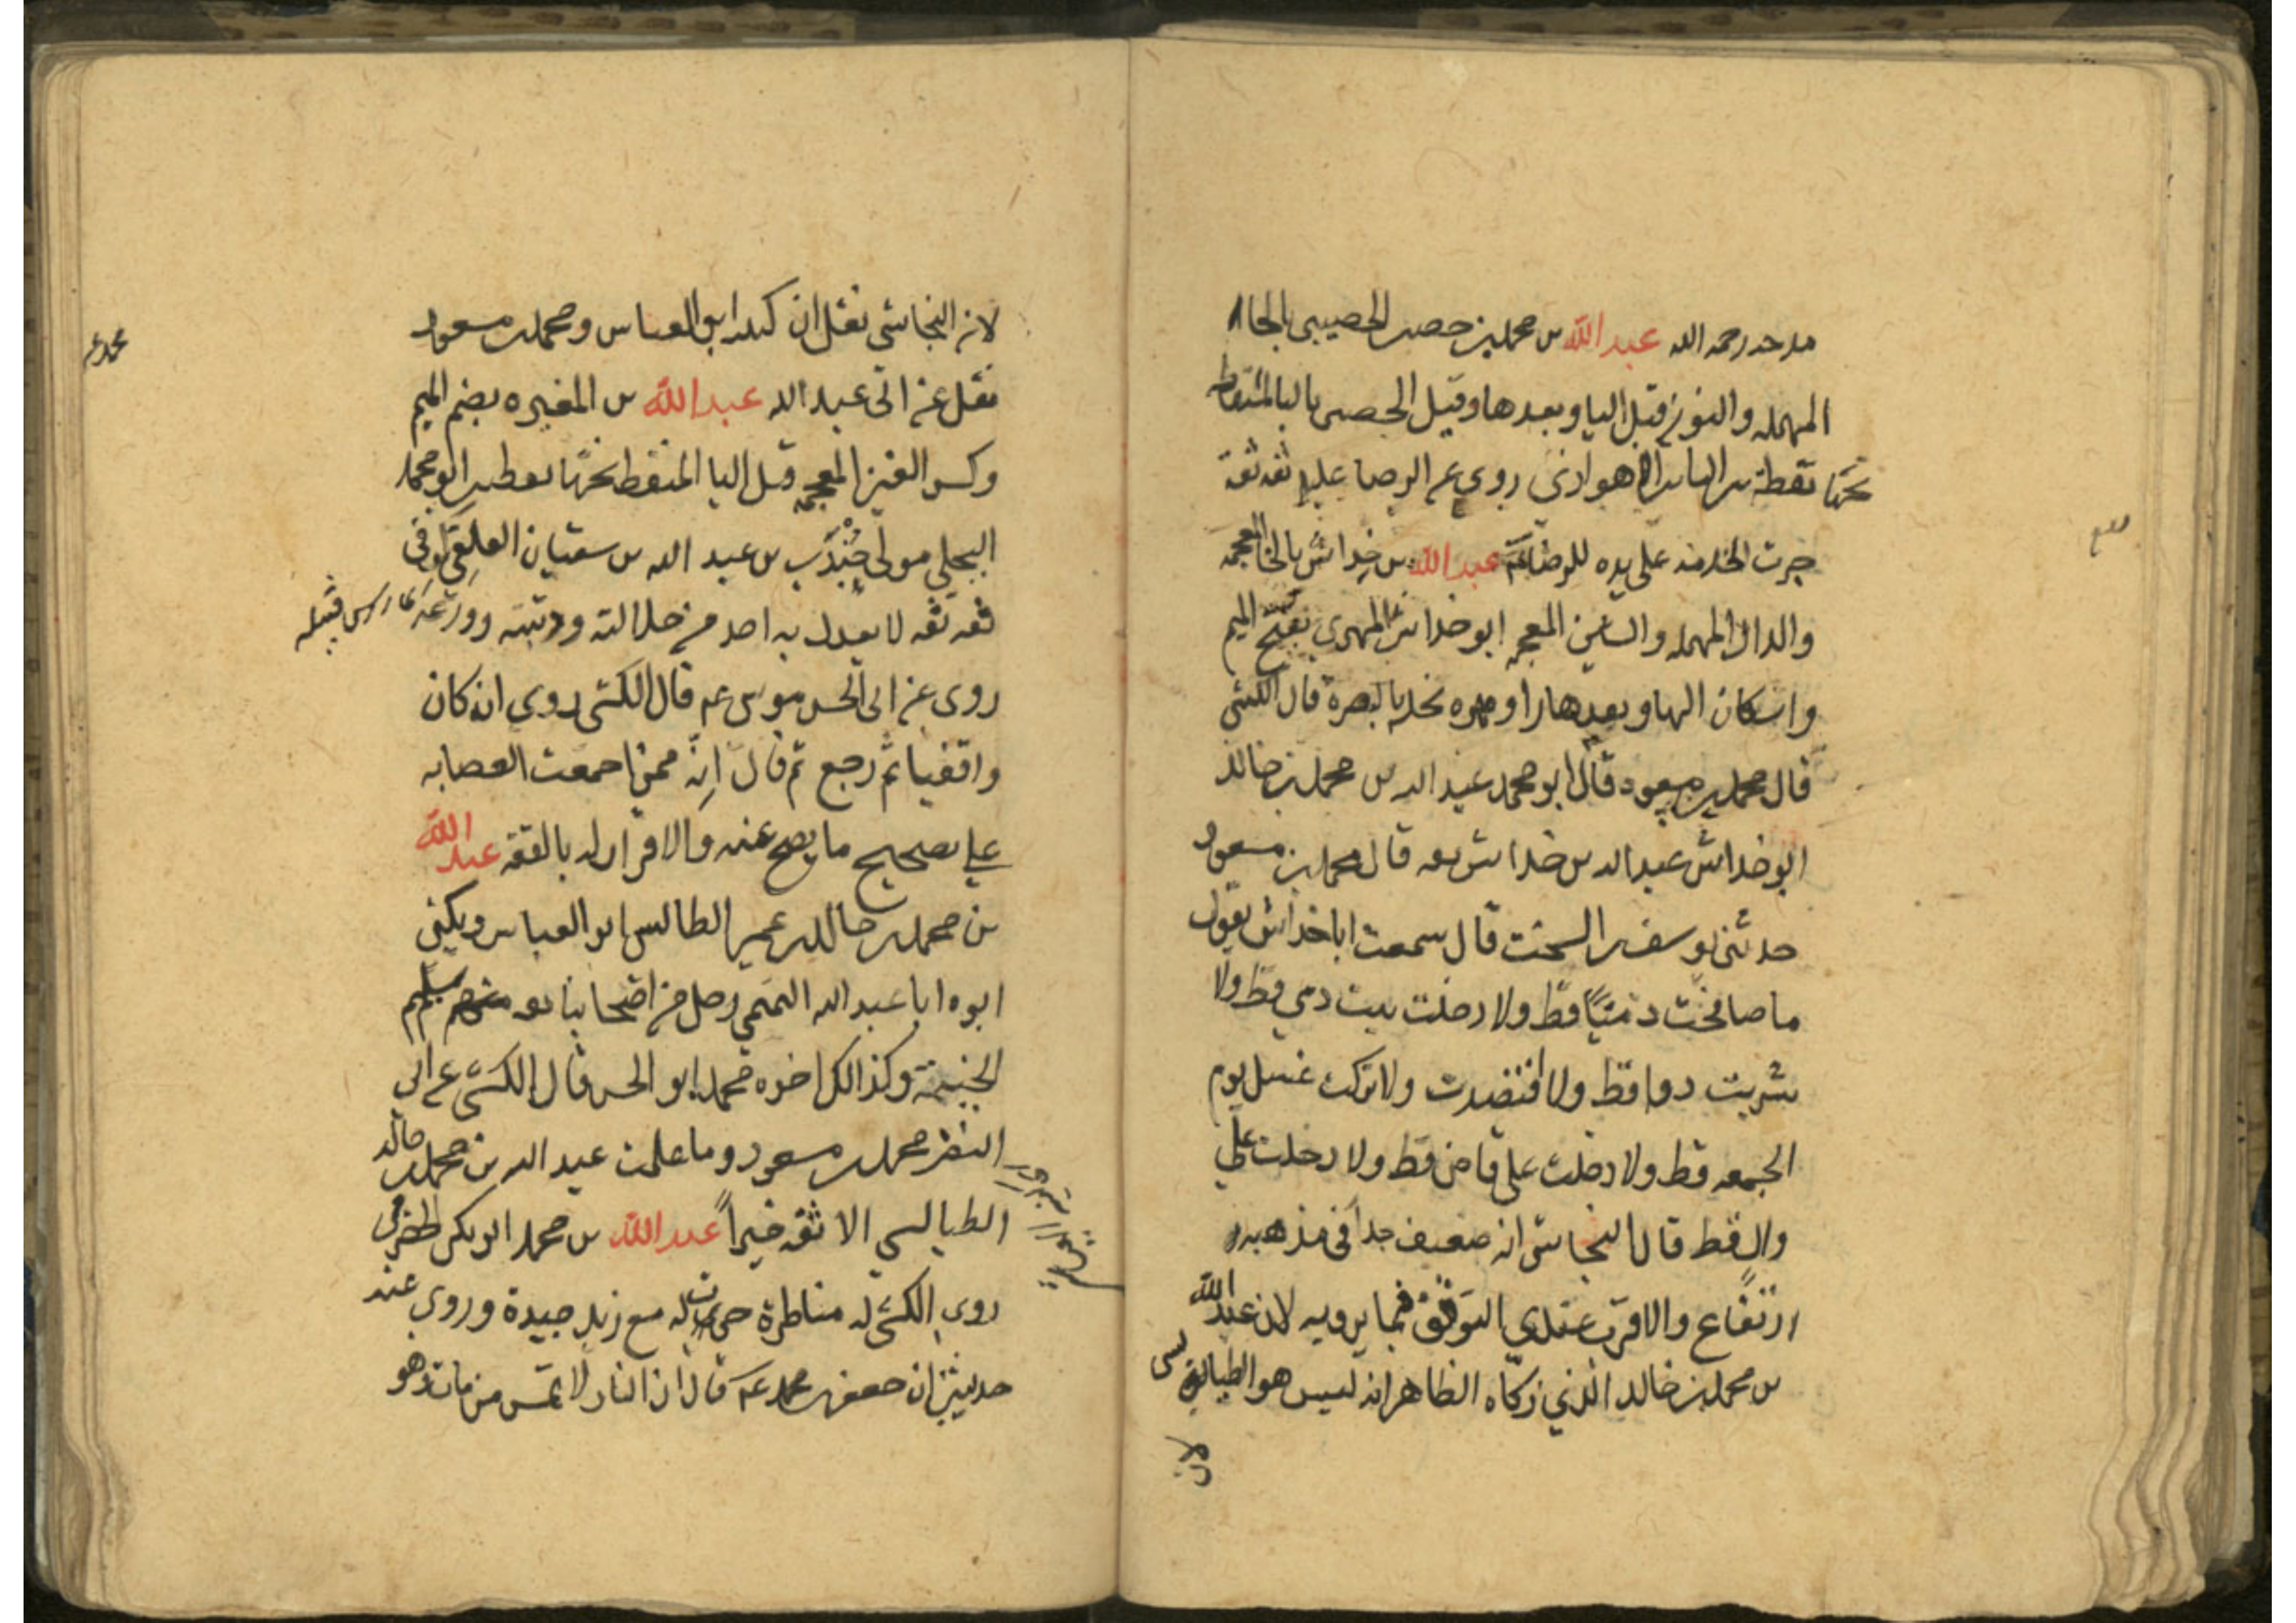 مدحه رحمه الله عبد الله بن محمد بن حصين الحصيبي بالحاء
المهمله والنون قبل اليا وبعدها وقيل الحصيبى باليا المنقطه
تحتها نقطة الاهوازى روى عن الرضا عليه ثقه ثقة
جرت الخدمة على يده للرضا عم عبد الله بن خِداش بالخا المعجمه
والدال المهمله والشين المعجمه ابو خداش المهري بفتح الميم
واسكان الها وبعدها را ومهره محله بالبصرة قال الكشي
قال محمد بن مسعود قال ابو محمد عبد الله بن محمد بن خالد
ابو خداش عبد الله بن خداش ثقه قال محمد بن مسعود
حدثنى يوسف بن السخت قال سمعت ابا خداش يقول
ما صافحت ذميًا قط ولا دخلت بيت ذمي قط ولا
شربت دوا قط ولا افتصدت ولا تركت غسل يوم
الجمعه قط ولا دخلت على قاض قط ولا دخلت على
وال قط قال النجاشي انه ضعيف جداً فى مذهبه
ارتفاع والاقرب عندي التوقف فيما يرويه لان عبد الله
بن محمد بن خالد الذي زكاه الظاهر انه ليس هو الطيالسى
لان
لان النجاشي نقل ان كنيته ابو العباس ومحمد بن مسعود
نقل عن ابى عبد الله عبد الله بن المغيره بضم الميم
وكسر الغين المعجمه قبل اليا المنقط تحتها نقطتين ابو محمد
البجلي مولى جُنْدَب بن عبد الله بن سفيان العلقي كوفى
ثقه ثقه لا يعدل به احد من جلالته ودينه وورعه
روى عن ابى الحسن موسى عم قال الكشى روى انه كان
واقفيا ثم رجع ثم قال انّه ممن اجمعت العصابه
على تصحيح ما يصح عنه والاقرار له بالفقه عبد الله
بن محمد بن خالد بن عمر الطيالسى ابو العباس ويكنى
ابوه ابا عبد الله التميمي رجل من اصحابنا ثقه سليم
الجنبة وكذالك اخوه محمد ابو الحسن قال الكشي عن ابى
النضر محمد بن مسعود وما علمت عبد الله بن محمد بن خالد
الطيالسي الا ثقه خيراً عبد الله بن محمد ابو بكر الحضرمي
روى الكشي له مناظرة جرت له مع زيد جيدة وروى عنه
حديثين ان جعفر بن محمد عم قال ان النار لا تمس من مات وهو